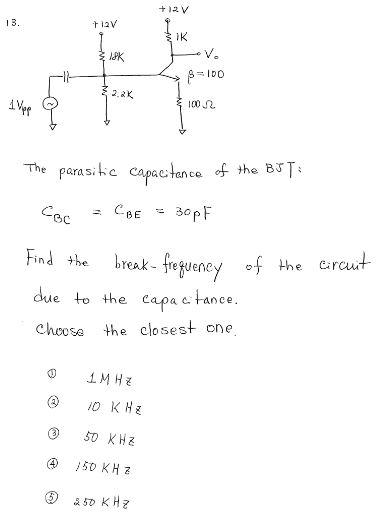 +12V
13.
+12V
1K
Vo
18K
β=100
2.2K
1Vpp
100Ω
The parasitic capacitance of the BJT:
CBC = CBE = 30pF
Find the break-frequency of the circuit
due to the capacitance.
choose the closest one.
① 1MHz
② 10 KHz
③ 50 KHz
④ 150 KHz
⑤ 250 KHz